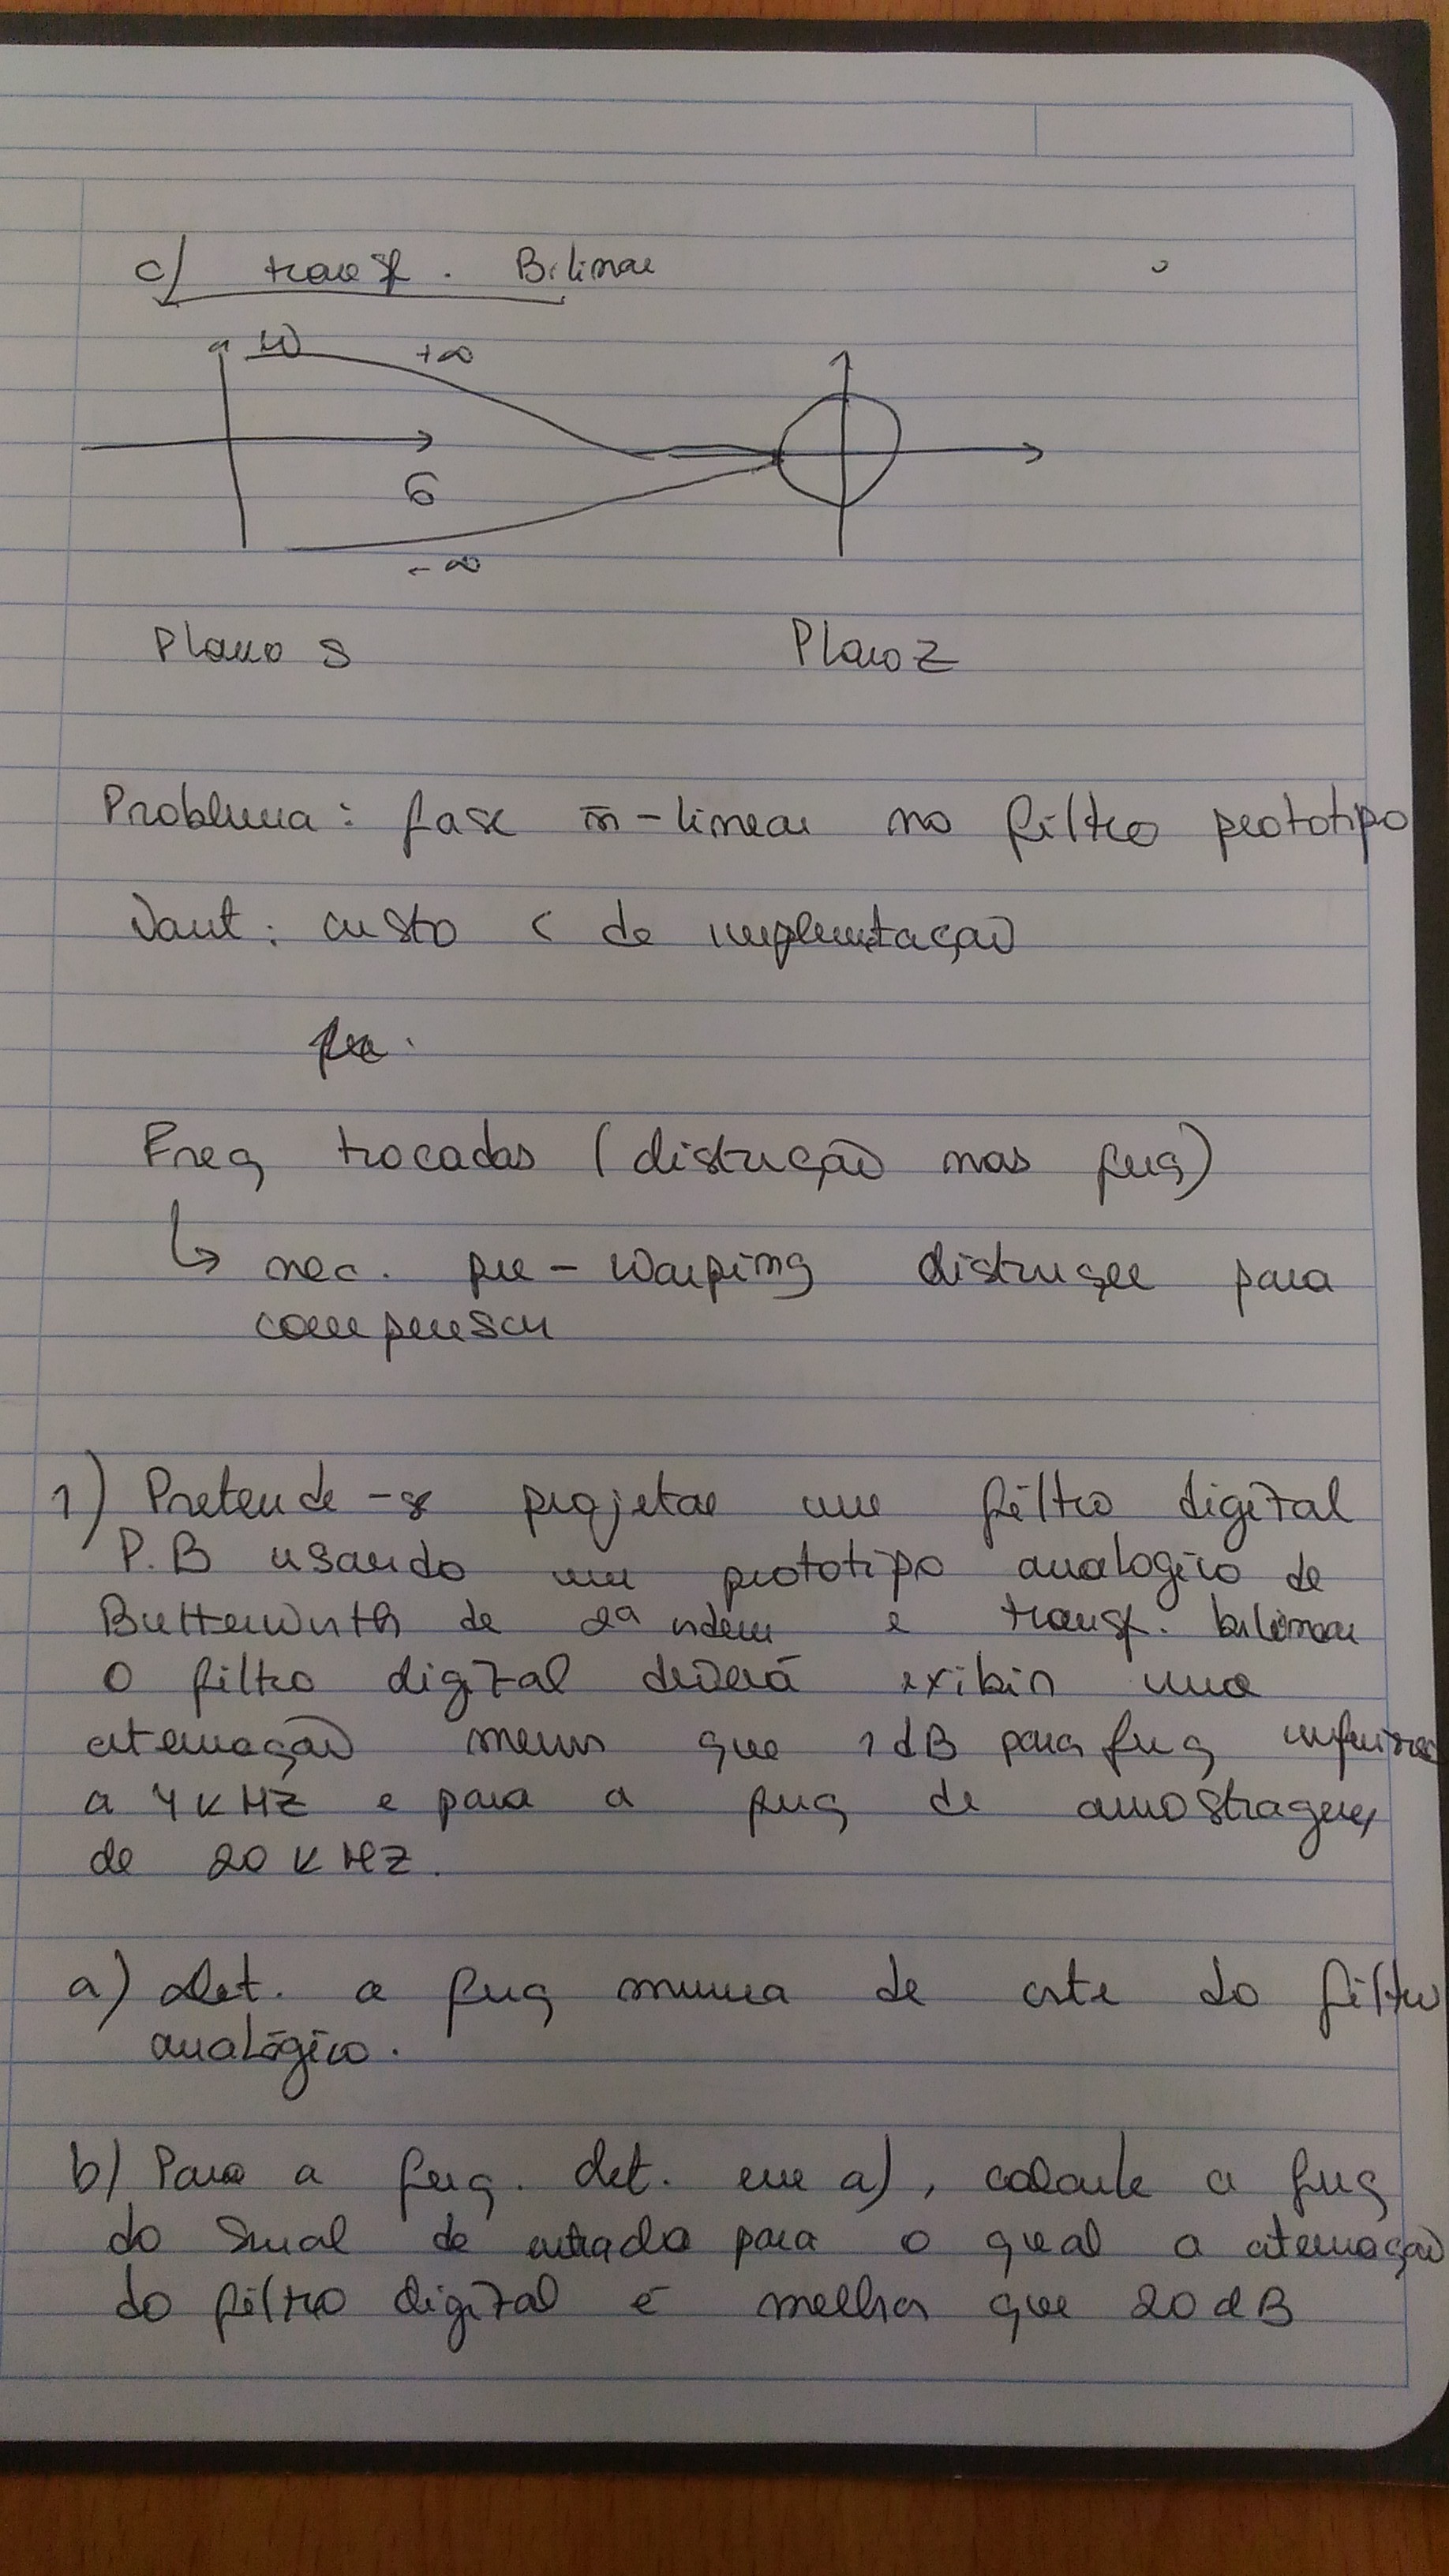 c) transf. Bilinear
w
+∞
σ
-∞
Plano s Plano z
Problema: fase ñ-linear no filtro prototipo
Vant: custo < de implemtação
Freq trocadas (distrução nas freq)
↳ nec. pre-warping distruçee para
compensar
1) Pretende-se projetar um filtro digital
P.B usando um prototipo analogico de
Butterworth de 2ª ordem e transf. bilinear
O filtro digital deverá exibir uma
atenuação menor que 1dB para freq inferiores
a 4KHZ e para a freq de amostragem
de 20KHZ.
a) Det. a freq minima de corte do filtro
analógico.
b) Para a freq. det. em a), calcule a freq
do sinal de entrada para o qual a atenuação
do filtro digital é melhor que 20dB